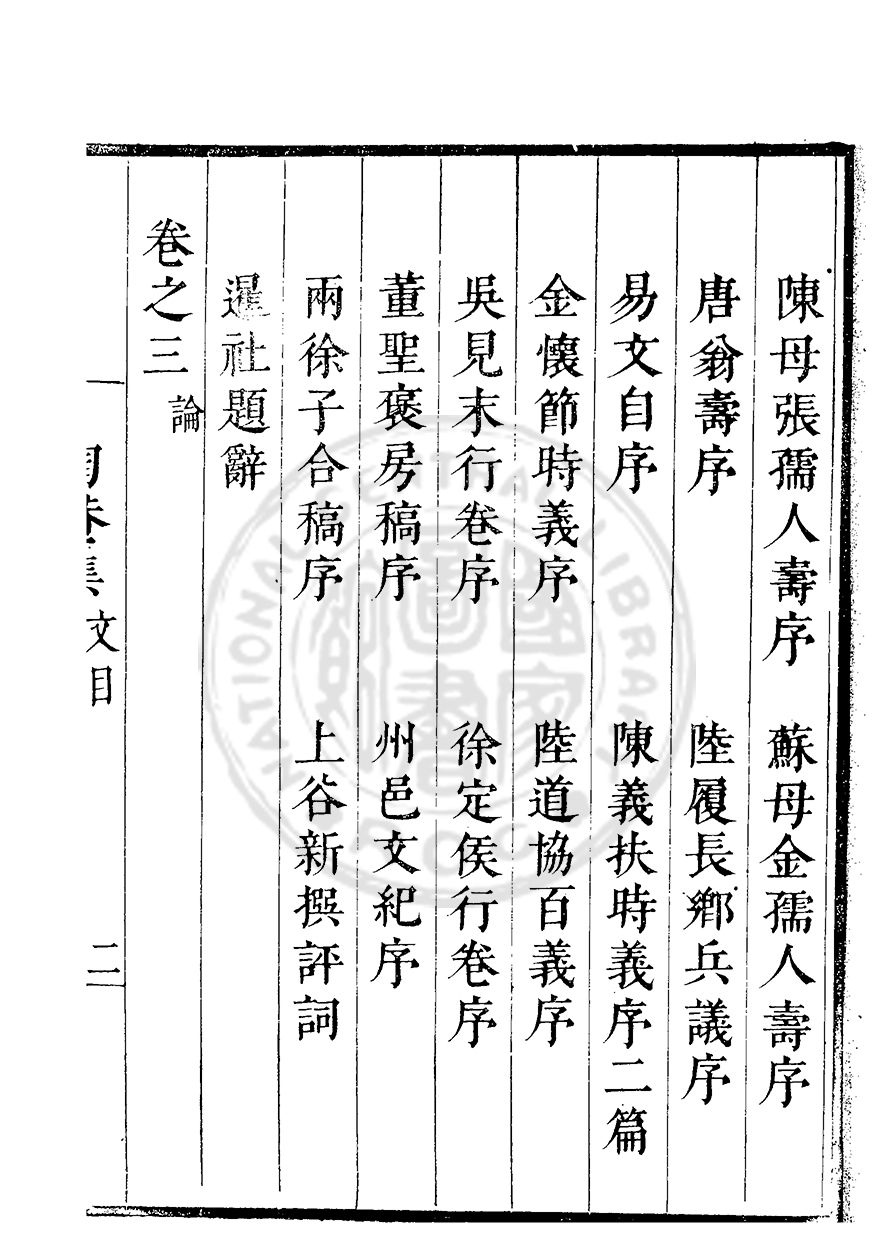 陳母張孺人壽序　蘇母金孺人壽序
唐翁壽序　陸履長鄉兵議序
易文自序　陳義扶時義序二篇
金懷節時義序　陸道協百義序
吳見末行卷序　徐定侯行卷序
董聖褒房稿序　州邑文紀序
兩徐子合稿序　上谷新撰評詞
暹社題辭
卷之三 論
陶菴集 文目 二
NATIONAL CENTRAL LIBRARY
國家圖書